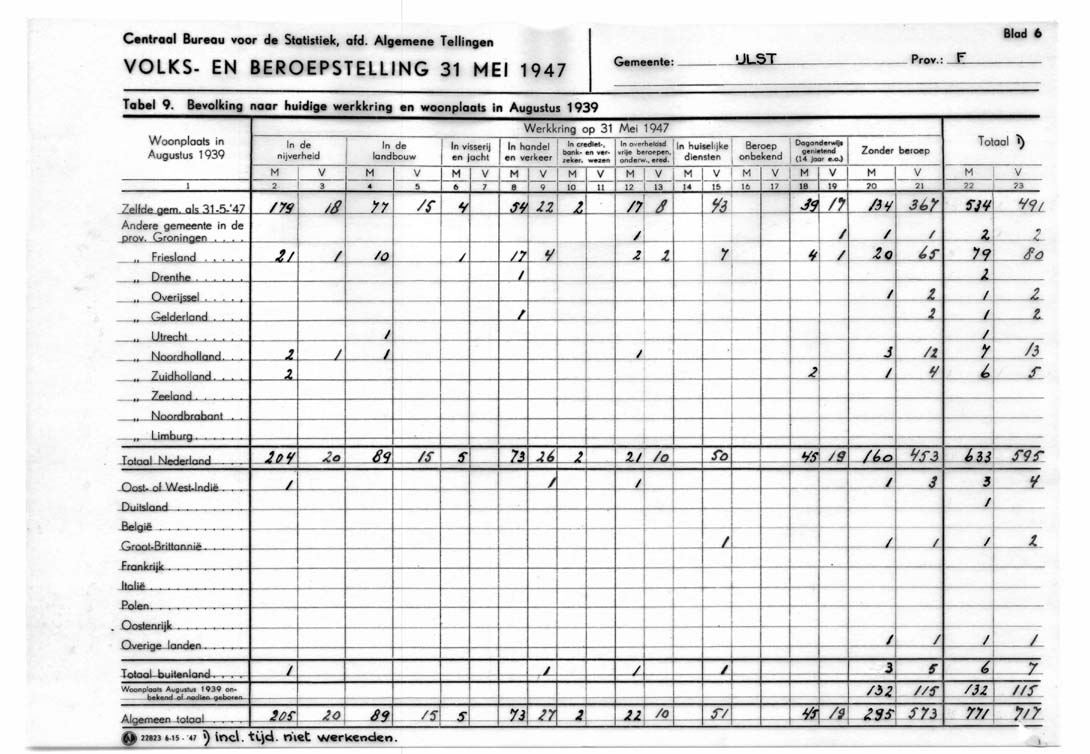 Centraal Bureau voor de Statistiek, afd. Algemene Tellingen
Blad 6
VOLKS- EN BEROEPSTELLING 31 MEI 1947
Gemeente: IJLST Prov.: F
Tabel 9. Bevolking naar huidige werkkring en woonplaats in Augustus 1939
Woonplaats in Augustus 1939
Werkkring op 31 Mei 1947
In de nijverheid
In de landbouw
In visserij en jacht
In handel en verkeer
In crediet-, bank- en verzeker. wezen
In overheidsd vrije beroepen, onderw., ered.
In huiselijke diensten
Beroep onbekend
Dagonderwijs genietend (14 jaar e.o.)
Zonder beroep
Totaal 1)
M V M V M V M V M V M V M V M V M V M V M V
1 2 3 4 5 6 7 8 9 10 11 12 13 14 15 16 17 18 19 20 21 22 23
Zelfde gem. als 31-5-'47 179 18 77 15 4 54 22 2 17 8 43 39 17 134 367 534 491
Andere gemeente in de
prov. Groningen . . . . 1 1 1 1 2 2
„ Friesland . . . . . 21 1 10 1 17 4 2 2 7 4 1 20 65 79 80
„ Drenthe . . . . . 1 2
„ Overijssel . . . . . 1 2 1 2
„ Gelderland . . . . 1 2 1 2
„ Utrecht . . . . . 1 1
„ Noordholland. . . 2 1 1 1 3 12 7 13
„ Zuidholland. . . . . 2 2 1 4 6 5
„ Zeeland . . . . .
„ Noordbrabant . .
„ Limburg . . . . .
Totaal Nederland . . . . 204 20 89 15 5 73 26 2 21 10 50 45 19 160 453 633 595
Oost- of West-Indië . . . 1 1 1 1 3 3 4
Duitsland . . . . . . . . 1
België . . . . . . . . .
Groot-Brittannië . . . . . 1 1 1 1 2
Frankrijk . . . . . . . .
Italië . . . . . . . . . .
Polen . . . . . . . . . .
Oostenrijk . . . . . . .
Overige landen . . . . . 1 1 1 1
Totaal buitenland . . . . 1 1 1 1 3 5 6 7
Woonplaats Augustus 1939 on-
bekend of nadien geboren 132 115 132 115
Algemeen totaal . . . . . 205 20 89 15 5 73 27 2 22 10 51 45 19 295 573 771 717
22823 6-15 - '47 1) incl. tijd. niet werkenden.